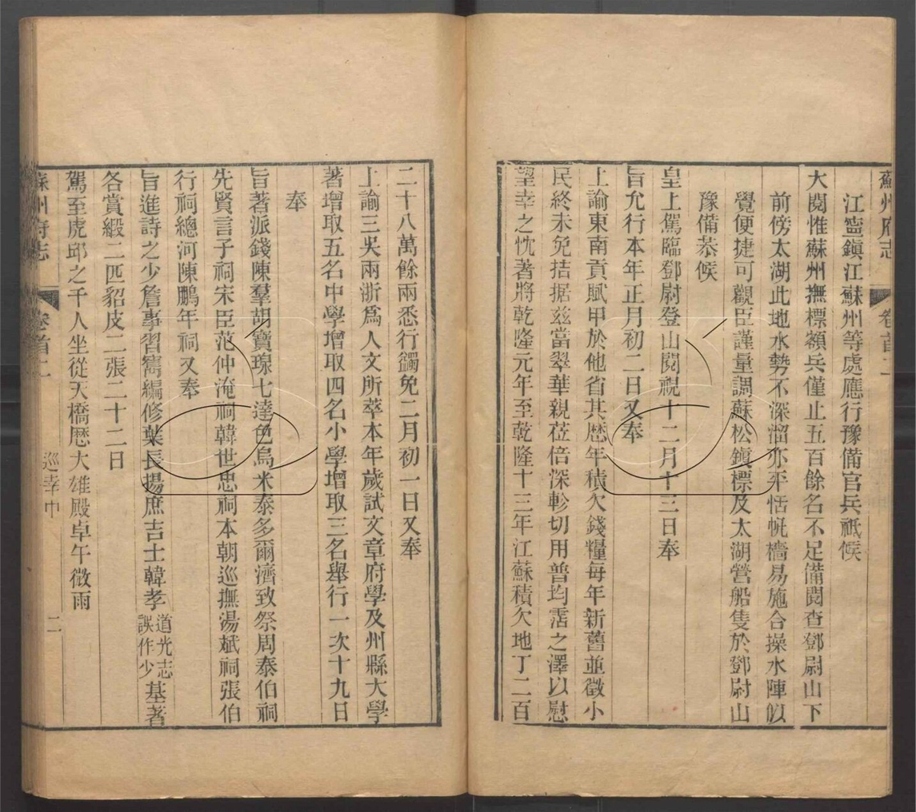 蘇州府志 卷首二
江寧鎮江蘇州等處應行豫備官兵祗候
大閱惟蘇州撫標額兵僅止五百餘名不足備閱查鄧尉山下
前傍太湖此地水勢不深溜亦平恬帆檣易施合操水陣似
覺便捷可觀臣謹量調蘇松鎮標及太湖營船隻於鄧尉山
豫備恭候
皇上駕臨鄧尉登山閱視十二月十三日奉
旨允行本年正月初二日又奉
上諭東南貢賦甲於他省其歷年積欠錢糧每年新舊並徵小
民終未免拮据茲當翠華親莅倍深軫切用普均霑之澤以慰
望幸之忱著將乾隆元年至乾隆十三年江蘇積欠地丁二百
二十八萬餘兩悉行蠲免二月初一日又奉
上諭三吳兩浙為人文所萃本年歲試文章府學及州縣大學
著增取五名中學增取四名小學增取三名舉行一次十九日
奉
旨著派錢陳羣胡寶瑔七達色烏米泰多爾濟致祭周泰伯祠
先賢言子祠宋臣范仲淹祠韓世忠祠本朝巡撫湯斌祠張伯
行祠總河陳鵬年祠又奉
旨進詩之少詹事習寯編修葉長揚庶吉士韓孝道光志誤作少基著
各賞緞二匹貂皮二張二十二日
駕至虎邱之千人坐從天橋歷大雄殿卓午微雨
蘇州府志 卷首二 巡幸中 二